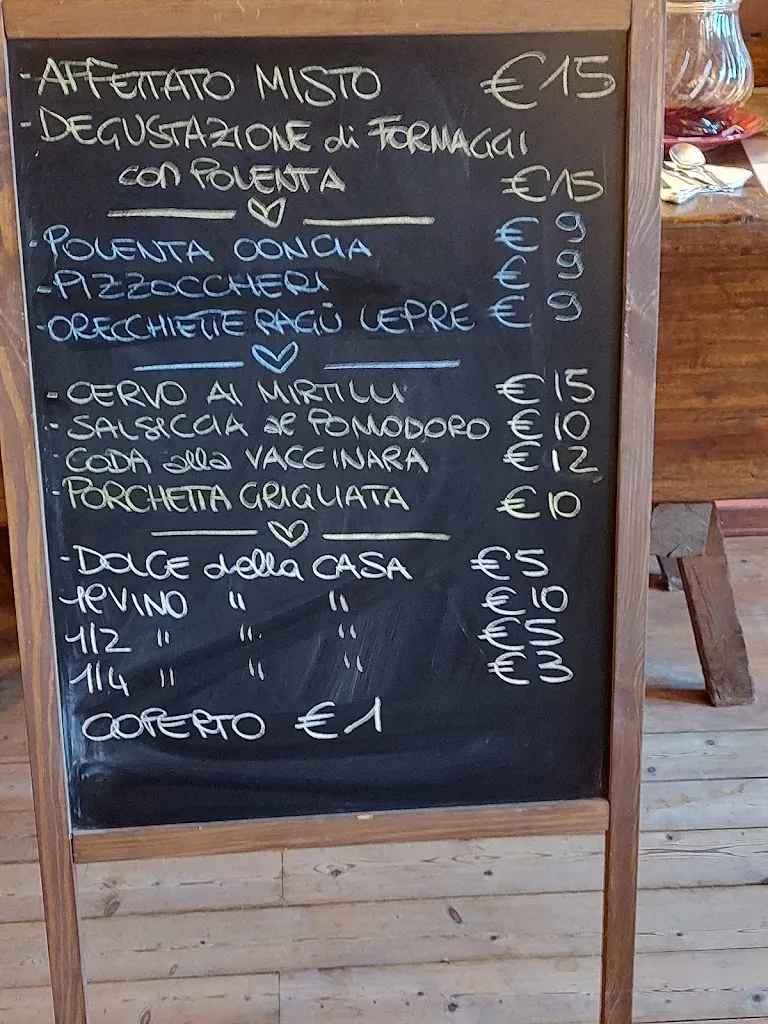 - AFFETTATO MISTO €15
- DEGUSTAZIONE di FORMAGGI
con POLENTA €15
- POLENTA CONCIA € 9
- PIZZOCCHERI € 9
- ORECCHIETTE RAGÙ LEPRE € 9
- CERVO AI MIRTILLI €15
- SALSICCIA al POMODORO €10
- CODA alla VACCINARA €12
- PORCHETTA GRIGLIATA €10
- DOLCE della CASA €5
1l VINO " " €10
1/2 " " " €5
1/4 " " " €3
COPERTO €1